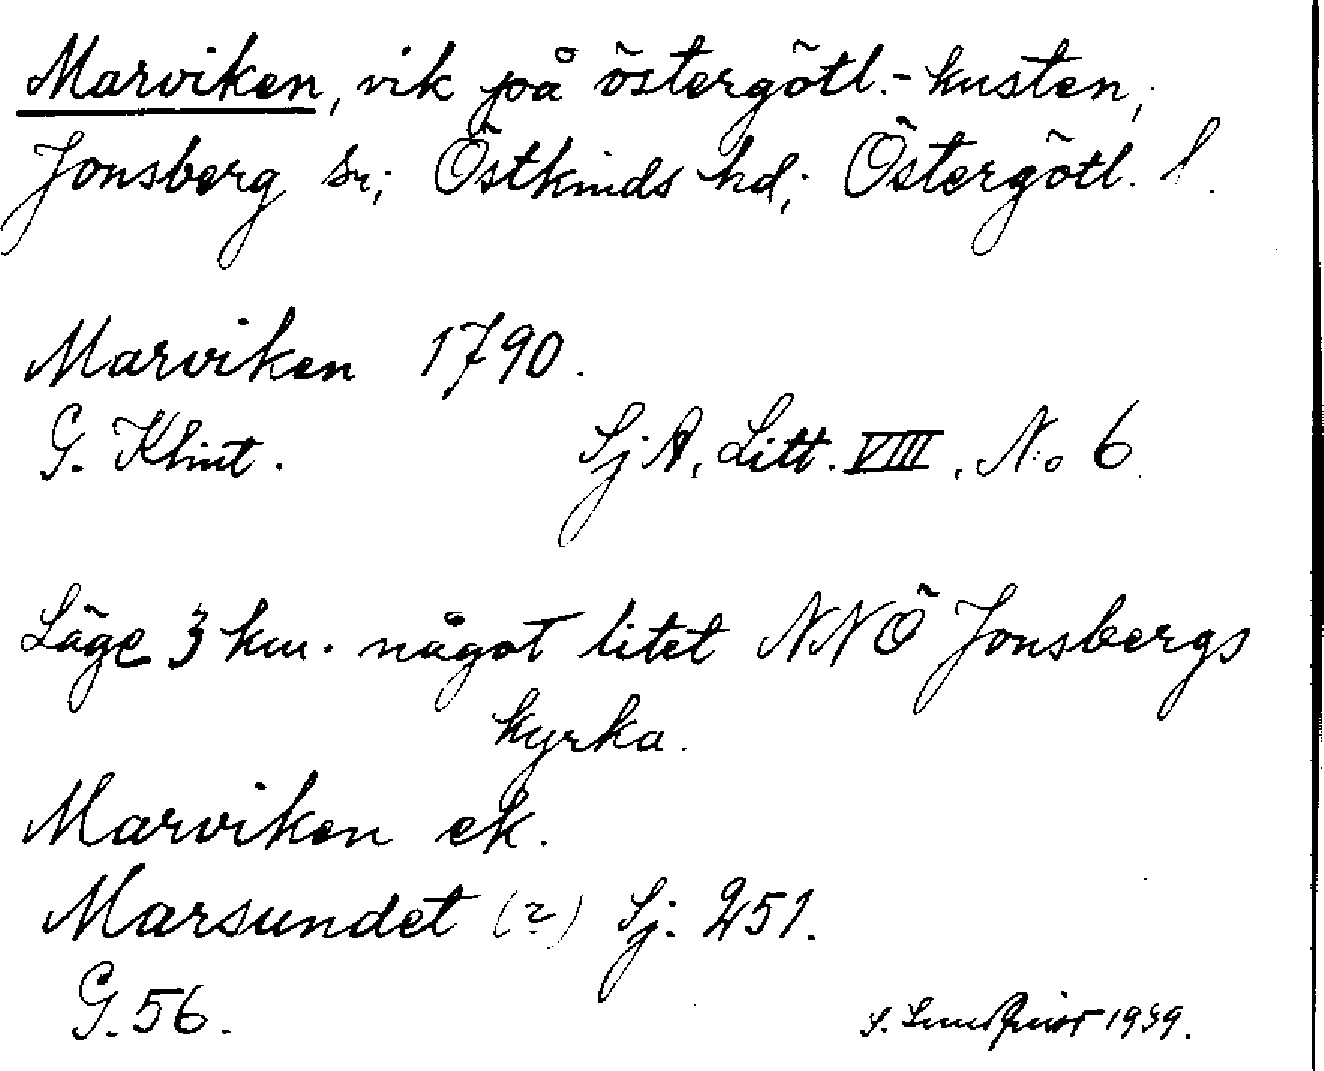 Marviken, vik på östergötl.-kusten,
Jonsberg sn; Östkinds hd; Östergötl. l.
Marviken 1790.
G. Klint. SjA, Litt. VIII, No 6.
Läge 3 km. något litet NNÖ Jonsbergs
kyrka.
Marviken ek.
Marsundet (?) Sj. 251.
G. 56. S. 1939.